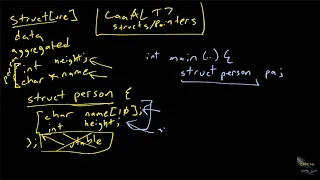 struct[ure]
data
aggregated
int height;
char * name;
struct person {
char name[10];
int height;
};
CaaAL T7
structs/Pointers
int main(.) {
struct person pa;